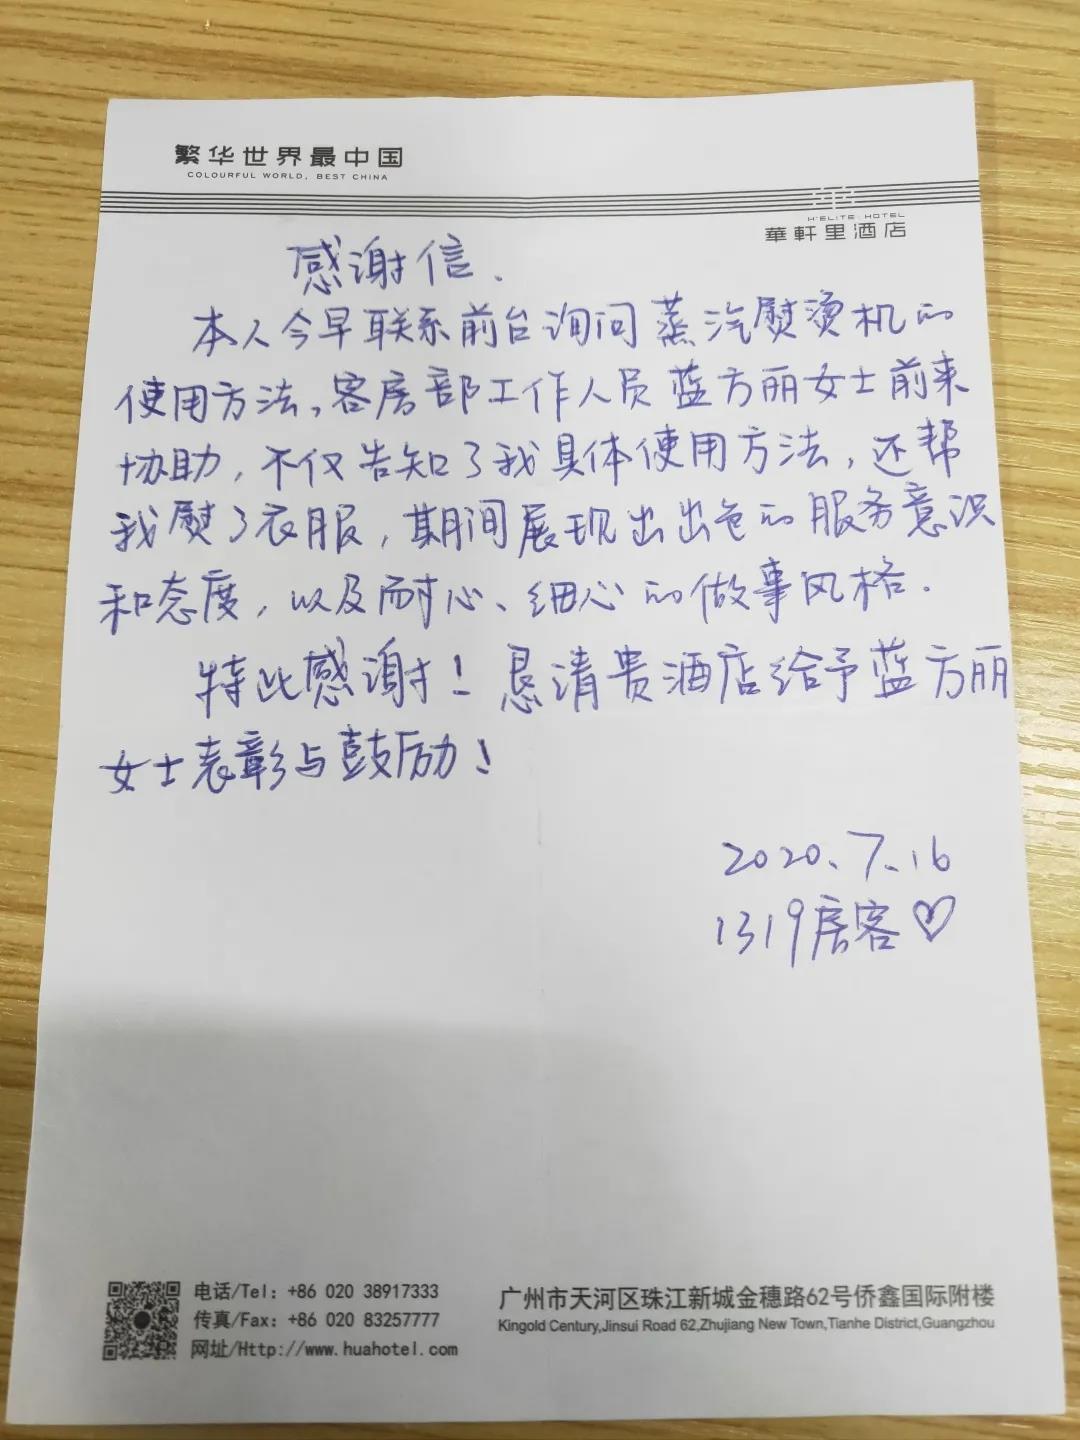 繁华世界最中国
COLOURFUL WORLD, BEST CHINA
H'ELITE HOTEL
華軒里酒店
感谢信.
本人今早联系前台询问蒸汽熨烫机的
使用方法,客房部工作人员蓝方丽女士前来
协助,不仅告知了我具体使用方法,还帮
我熨了衣服,期间展现出出色的服务意识
和态度,以及耐心、细心的做事风格.
特此感谢!恳请贵酒店给予蓝方丽
女士表彰与鼓励!
2020.7.16
1319房客♡
电话/Tel: +86 020 38917333
传真/Fax: +86 020 83257777
网址/Http://www.huahotel.com
广州市天河区珠江新城金穗路62号侨鑫国际附楼
Kingold Century,Jinsui Road 62,Zhujiang New Town,Tianhe District,Guangzhou